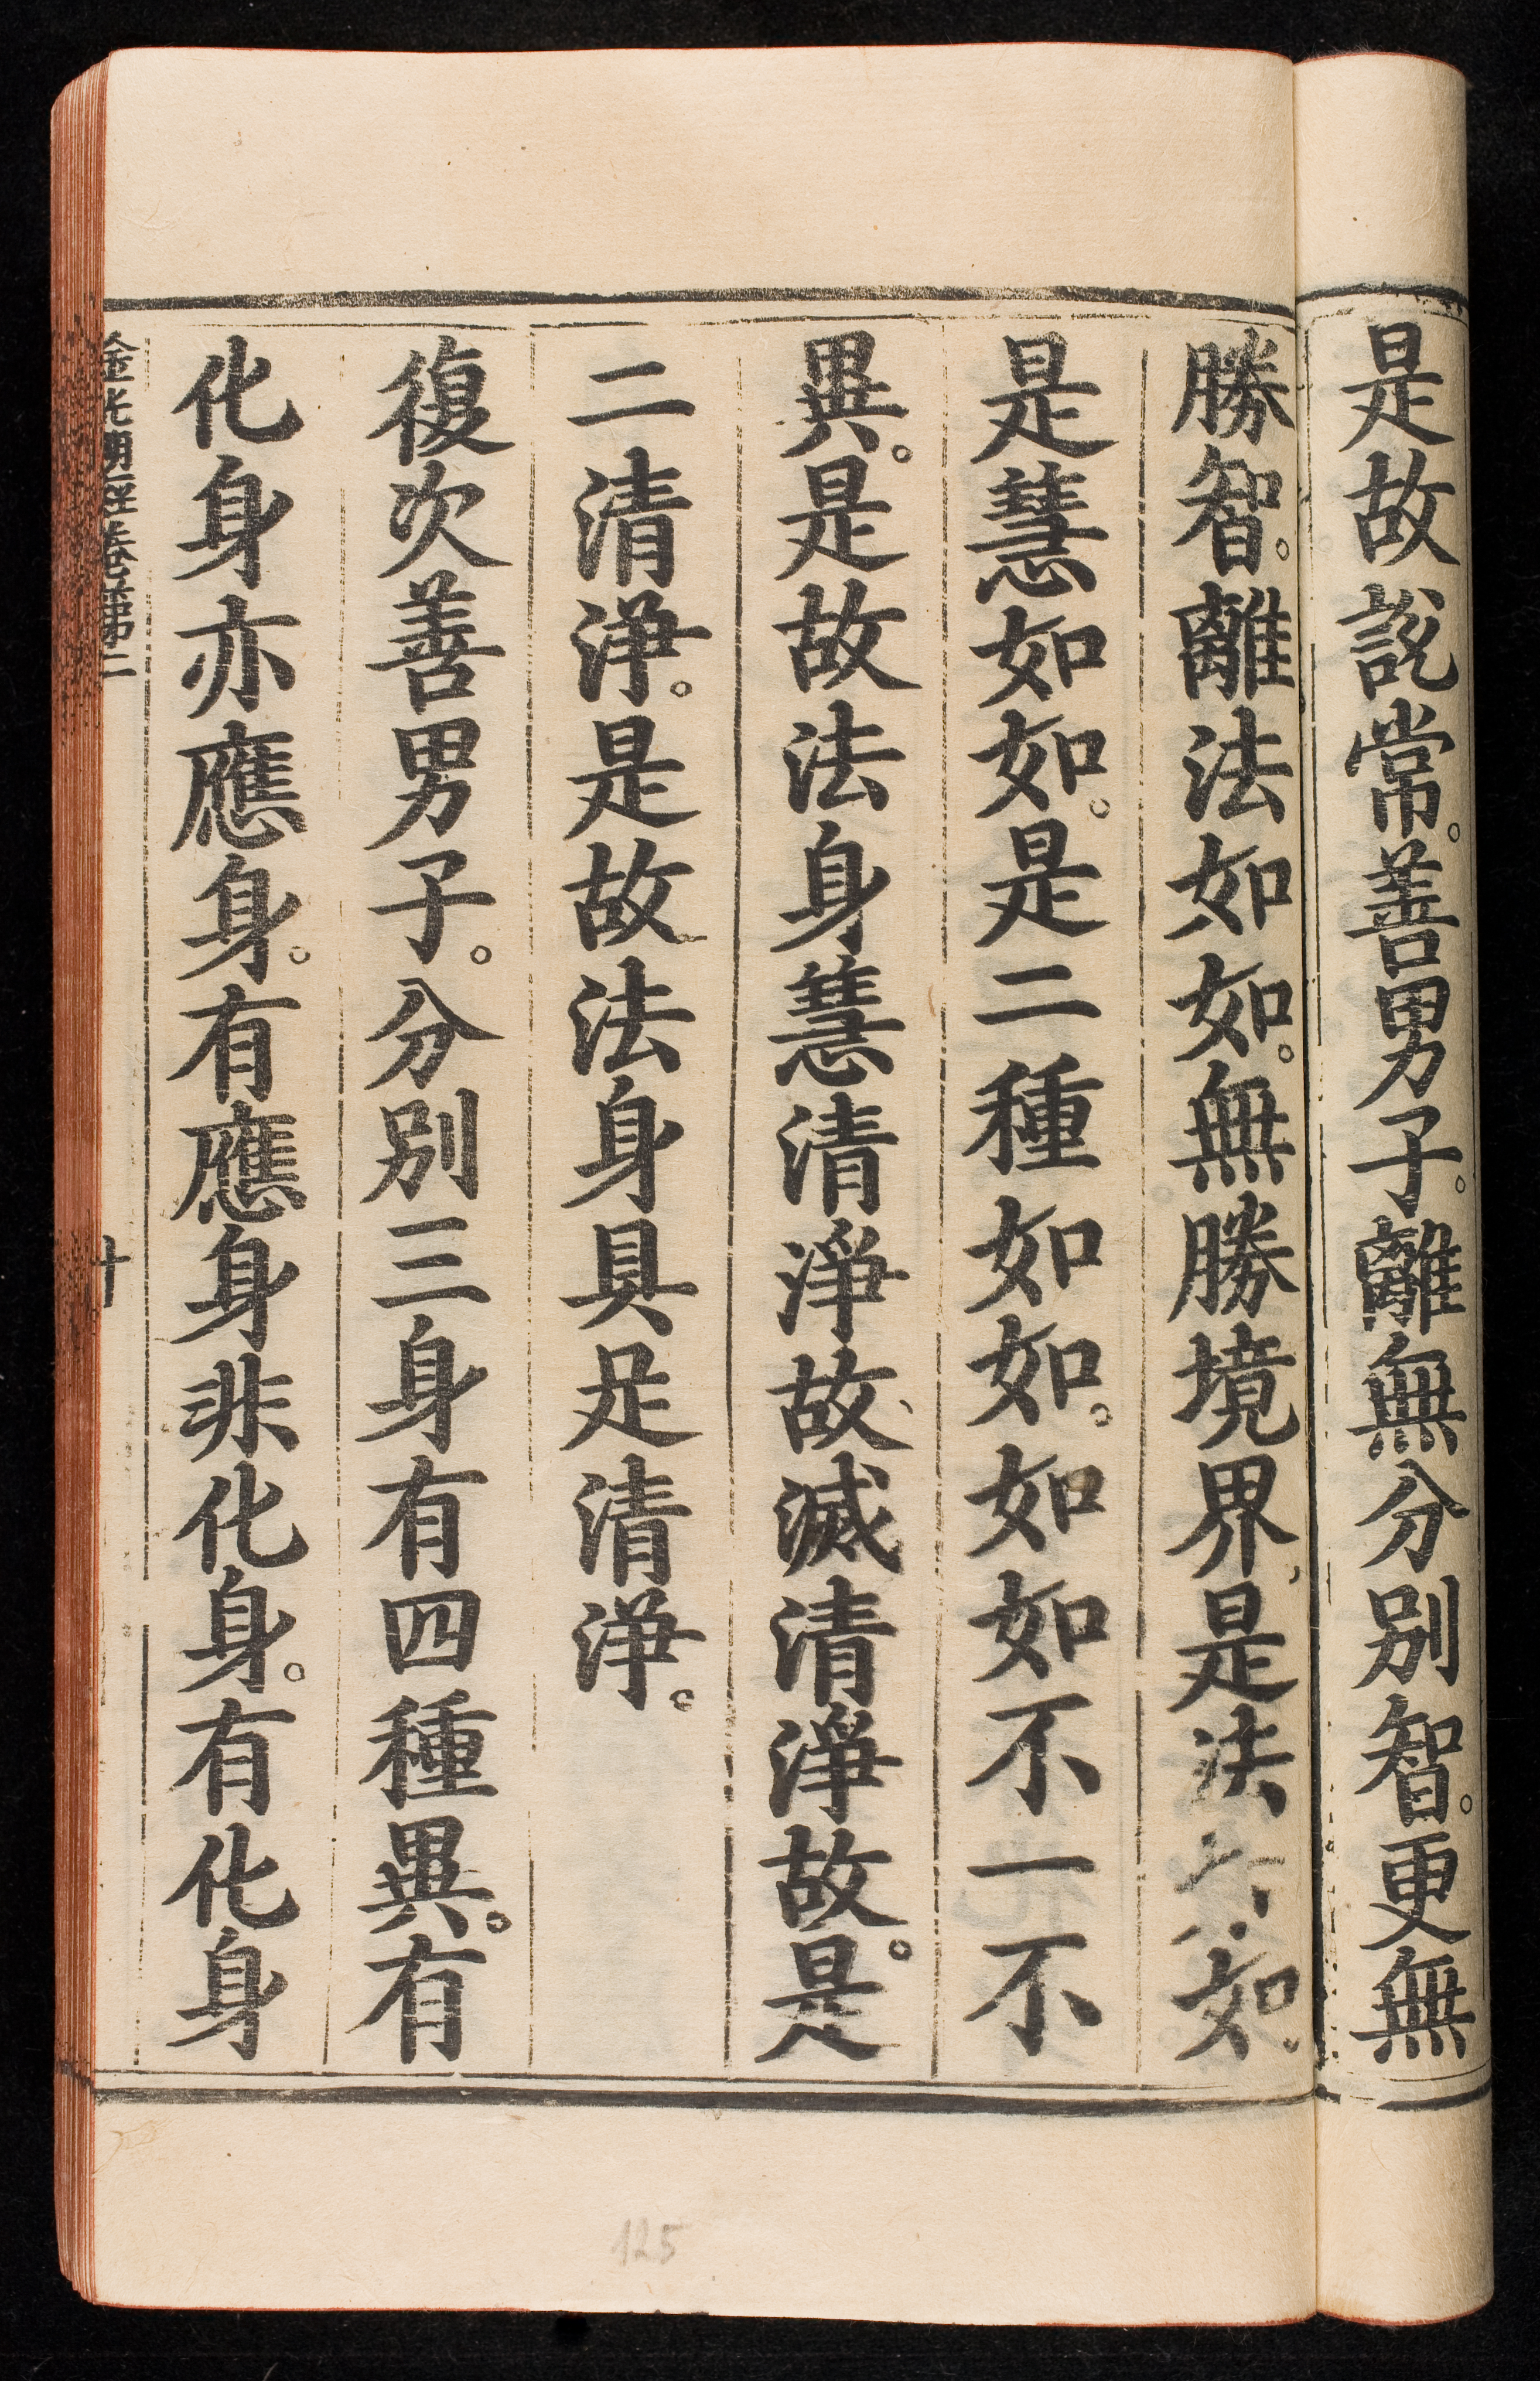 是故說常。善男子。離無分別智。更無
勝智。離法如如。無勝境界、是法如。
是慧如如。是二種如如。如如不一不
異。是故法身慧清淨故、滅清淨故。是
二清淨。是故法身具足清淨。
復次善男子。分別三身有四種異。有
化身亦應身。有應身非化身。有化身
金光明經卷第二
十
125